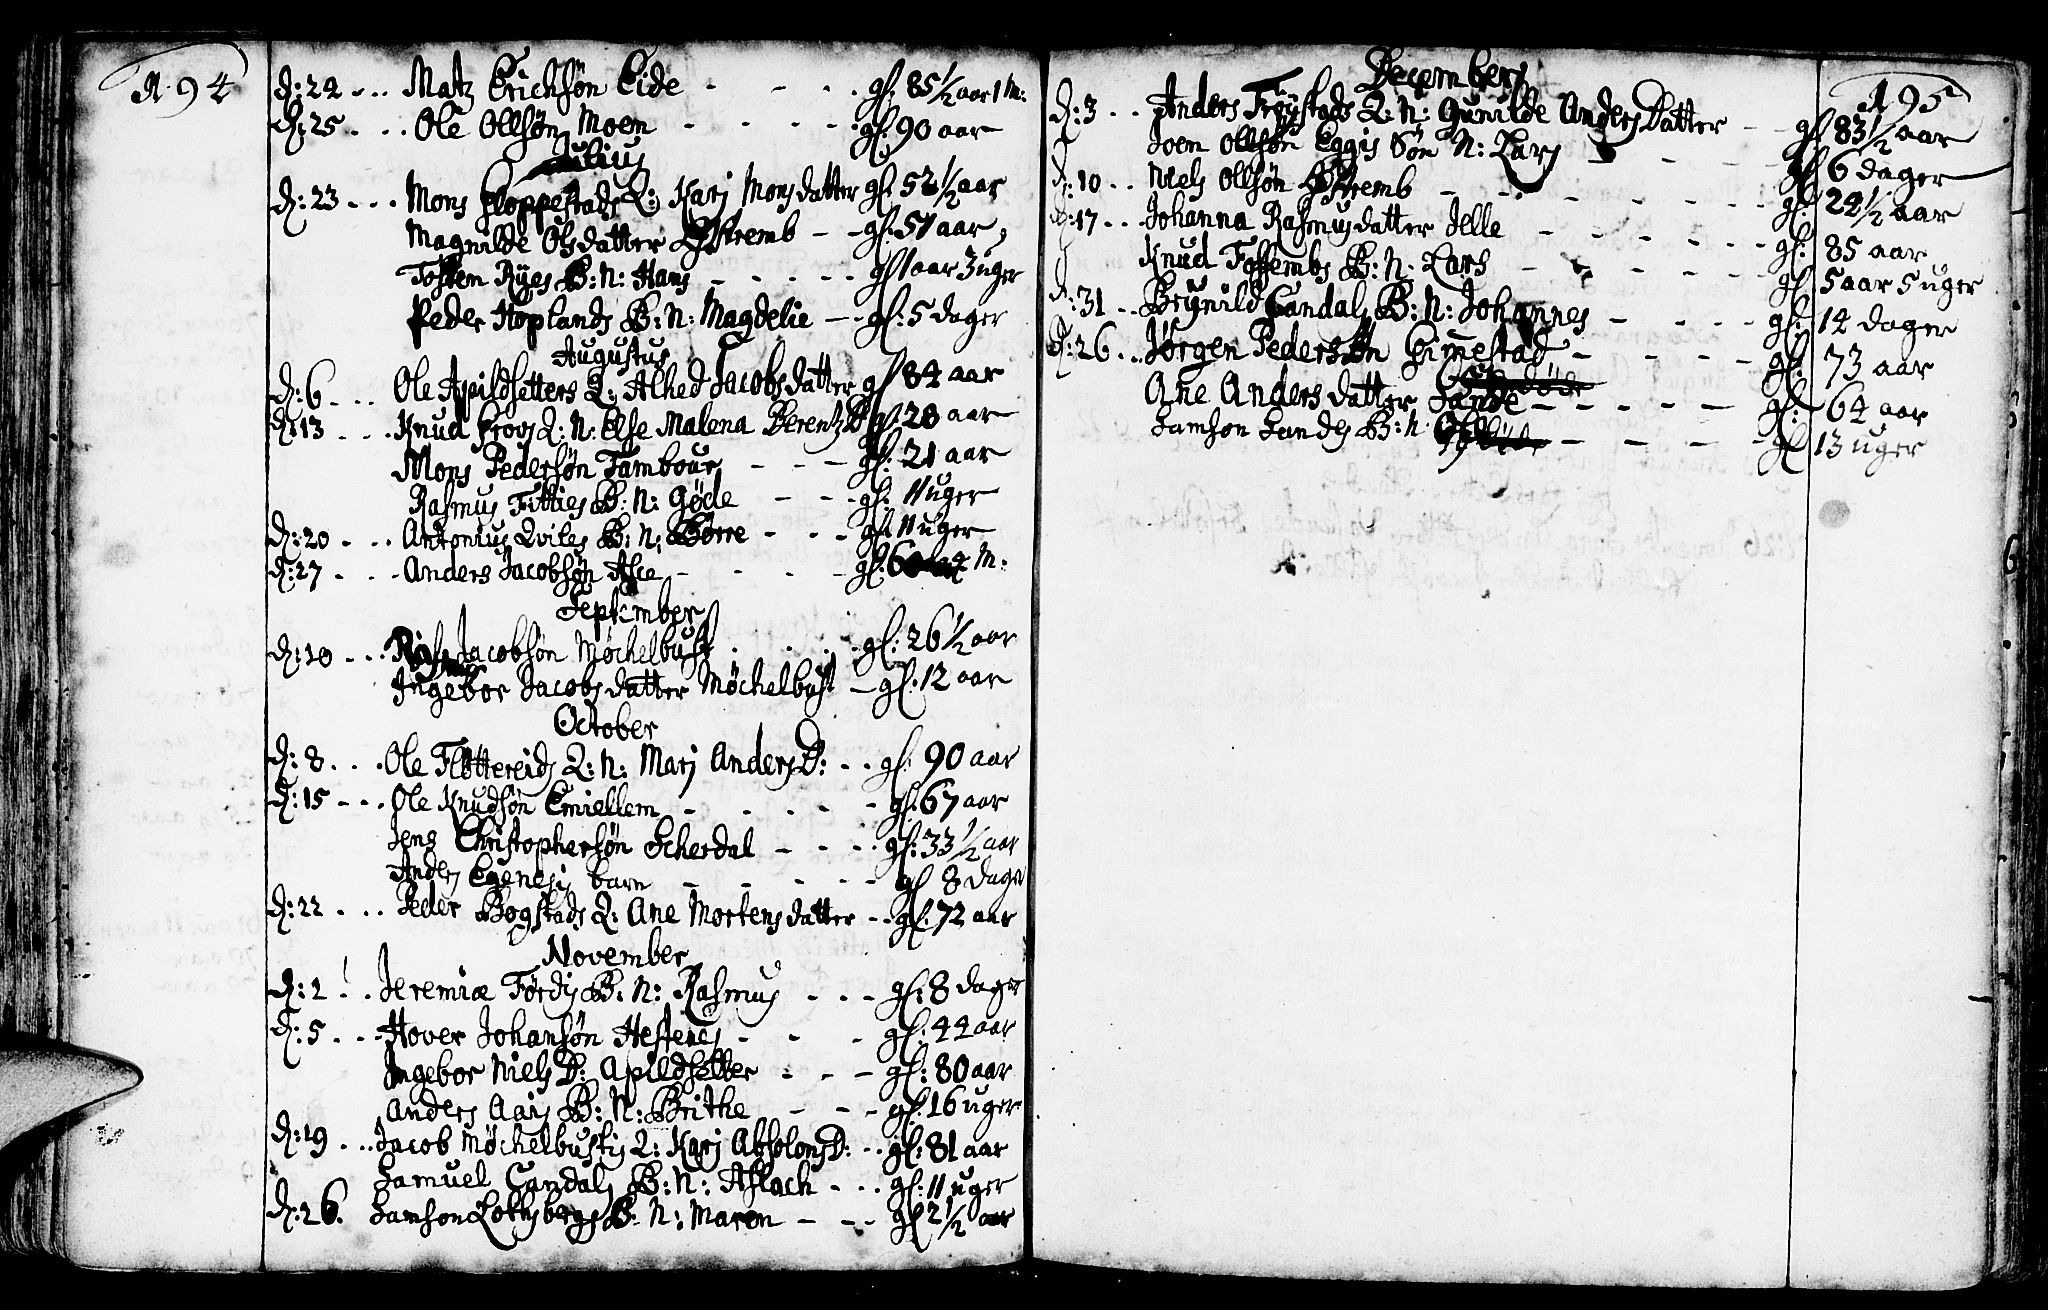 194
d: 24 - - - Matz Erichsøn Eide - - - - gl: 85 1/2 aar 1 M:
d: 25 - - - Ole Ollsøn Moen - - - - gl: 90 aar
Julius
d: 23 - - - Mons Floppestads Q: Karj Monsdatter gl: 52 1/2 aar
Magnilde Olsdatter - - gl: 51 aar
Tosten Ryes B: N: Hans - - - - - gl 1 aar 3 uger
Peder Hoplands B: N: Magdelie - - gl: 5 dager
Augustus
d: 6 - - - Ole Apildsetters Q: Alhed Jacobsdatter gl 84 aar
d: 13 - - - Knud Q: N: Else Malena Berentz D gl 28 aar
Mons Pedersøn Tambour - - - gl: 21 aar
Rasmus Fitties B: N: Gøde - - - gl: 11 uger
d: 20 - - - Antonius Qviles B: N: Børre - - - gl 11 uger
d: 27 - - - Anders Jacobsøn - - - - gl: 60 M:
September
d: 10 - - - Jacobsøn Møchelbust - - - - gl: 26 1/2 aar
Ingebor Jacobsdatter Møchelbust - gl: 12 aar
October
d: 8 - - - Ole Fløttereids Q: N: Marj Anders D: - - gl: 90 aar
d: 15 - - - Ole Knudsøn Emiellem - - - - - gl: 67 aar
Jens Christophersøn Scherdal - - - - gl: 33 1/2 aar
Anders Egenesis barn - - - - - gl 8 dage
d: 22 - - - Peder Bogstads Q: Ane Mortensdatter - - gl: 72 aar
November
d: 2 - - - Jeremiæ Førdis B: N: Rasmus - - - gl: 8 dager
d: 5 - - - Hover Johansøn Hestenes - - - gl: 44 aar
Ingebor Niels D: Apildsetter - - - gl: 80 aar
Anders Aais B: N: Brithe - - - gl: 16 uger
d: 19 - - Jacob Møchelbustis Q: Karj Absolons D: - - gl: 81 aar
Samuel Candals B: N: Aslach - - - gl: 11 uger
d: 26. Samson B: N: Maren - - - gl 2 1/2 aar
195
December
d: 3 - - Anders Frøistads Q: N: Gunilde Anders Datter - - gl 83 1/2 aar
Joen Ollsøn Eggis Søn N: Lars - - - - gl 6 dager
d: 10 - - Niels Ollsøn - - - - - - - gl: 24 1/2 aar
d: 17 - - - Johanna Rasmusdatter Jelle - - - - - - gl: 85 aar
Knud B: N: Lars - - - - - - gl 5 aar 5 uger
d: 31 - - Brynild Candals B: N: Johannes - - - - gl: 14 dager
d: 26 - - - Jørgen Pedersøn Gimestad - - - - - gl: 73 aar
Ane Andersdatter Sande - - - - - gl: 64 aar
Samson Sandes B: N: - - - - - gl 13 uger